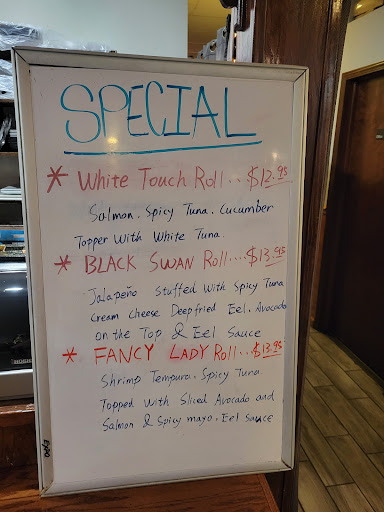 SPECIAL
* White Touch Roll... $12.95
Salmon. Spicy Tuna. Cucumber
Topper With White Tuna.
* BLACK SWAN Roll.... $13.95
Jalapeño Stuffed With Spicy Tuna
Cream Cheese Deepfried Eel. Avocado
on the Top & Eel Sauce
* FANCY LADY Roll... $13.95
Shrimp Tempura. Spicy Tuna
Topped With Sliced Avocado and
Salmon & Spicy mayo. Eel Sauce
Expo